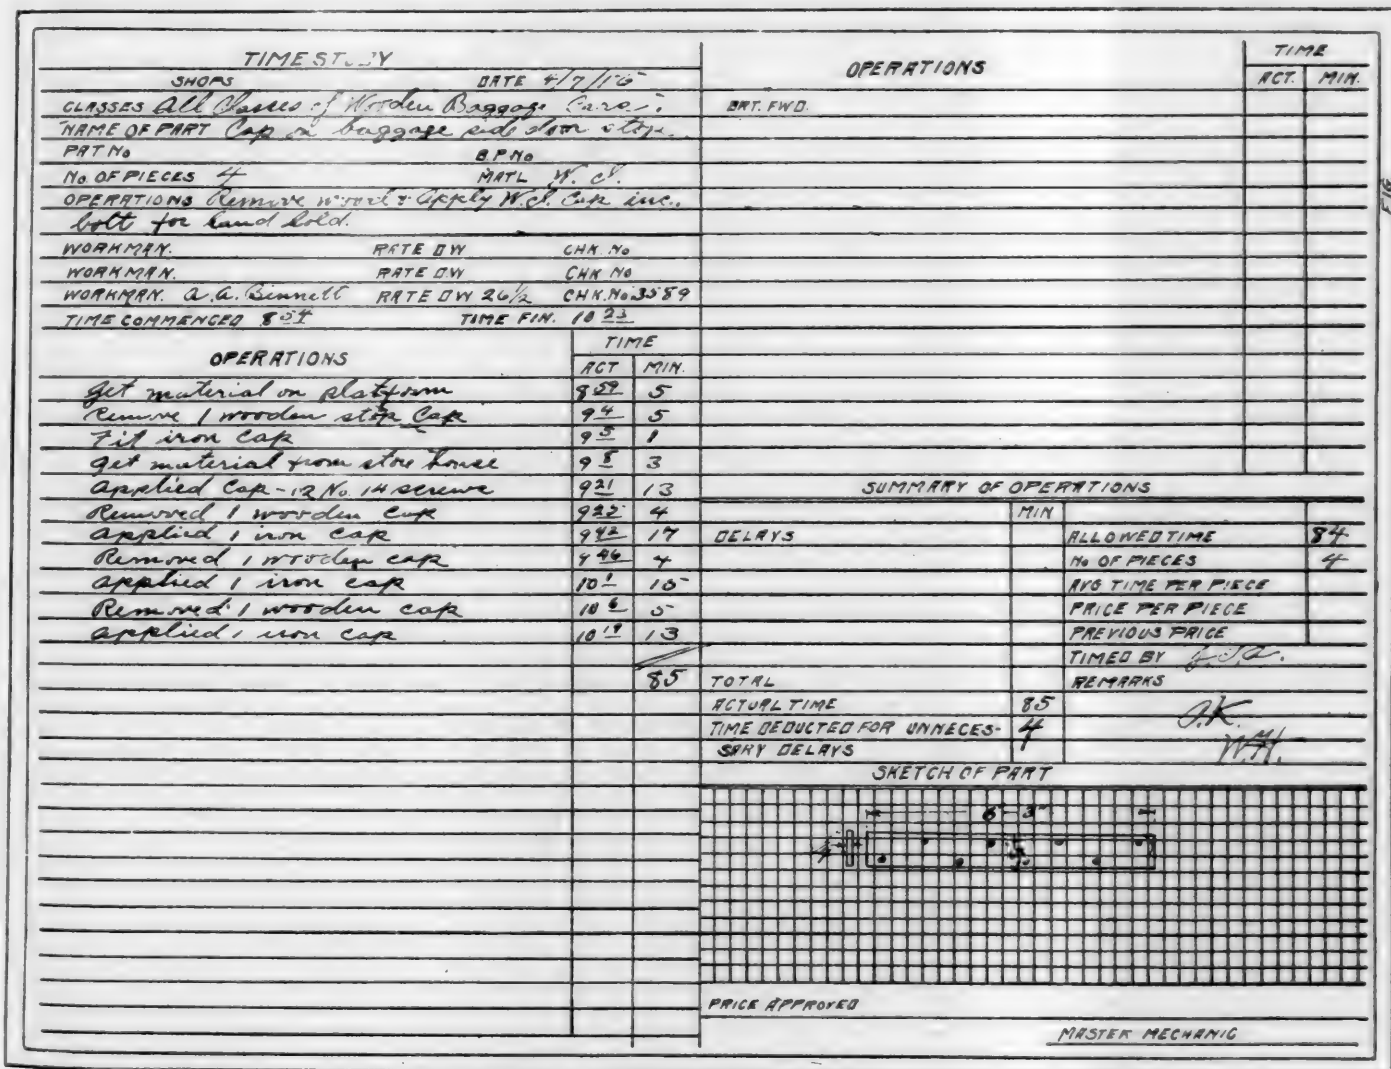 TIME STUDY
SHOPS DATE 4/7/16
CLASSES All Classes of Wooden Baggage Cars.
NAME OF PART Cap on baggage side door stop.
PRT No B.P. No
No OF PIECES 4 MATL W. I.
OPERATIONS Remove wood & Apply W.I. Cap inc.
bolt for hand hold.
WORKMAN. RATE DW CHK. No
WORKMAN. RATE DW CHK No
WORKMAN. A. A. Bennett RATE DW 26 1/2 CHK. No 3589
TIME COMMENCED 8 54 TIME FIN. 10 23
OPERATIONS TIME
ACT MIN.
Get material on platform 8 59 5
Remove 1 wooden stop Cap 9 4 5
Fit iron Cap 9 5 1
Get material from store house 9 8 3
Applied Cap - 12 No. 14 screws 9 21 13
Removed 1 wooden cap 9 25 4
Applied 1 iron cap 9 42 17
Removed 1 wooden cap 9 46 4
Applied 1 iron cap 10 1 15
Removed 1 wooden cap 10 6 5
Applied 1 iron cap 10 19 13
85
OPERATIONS TIME
ACT. MIN.
BRT. FWD.
SUMMARY OF OPERATIONS
MIN
DELAYS ALLOWED TIME 84
No OF PIECES 4
AVG TIME PER PIECE
PRICE PER PIECE
PREVIOUS PRICE
TIMED BY
TOTAL REMARKS
ACTUAL TIME 85 O.K.
TIME DEDUCTED FOR UNNECES-
SARY DELAYS
SKETCH OF PART
6' - 3"
PRICE APPROVED
MASTER MECHANIC